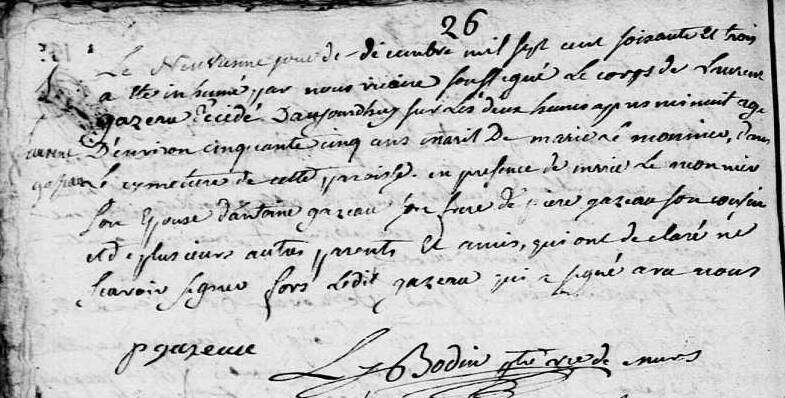 26
Le Neuvienne jour de decembre mil sept cent soixante et trois
a ete inhumé par nous vicaire soussigné le corps de Laurent
gazeau décédé D'aujourdhuy sur les deux heures apres minuit agé
D'environ cinquante cinq ans mari De marie le monnier, dans
le cymetiere de cette paroisse en presence de marie le monnier
son Epouse d'antoine gazeau son frere de piere gazeau son cousin
et de plusieurs autres parents Et amis, qui ont declaré né
scavoir signer fors ledit gazeau qui a signé avec nous
laurent
gazeau
p gazeau
L Bodin ptre vic de murs